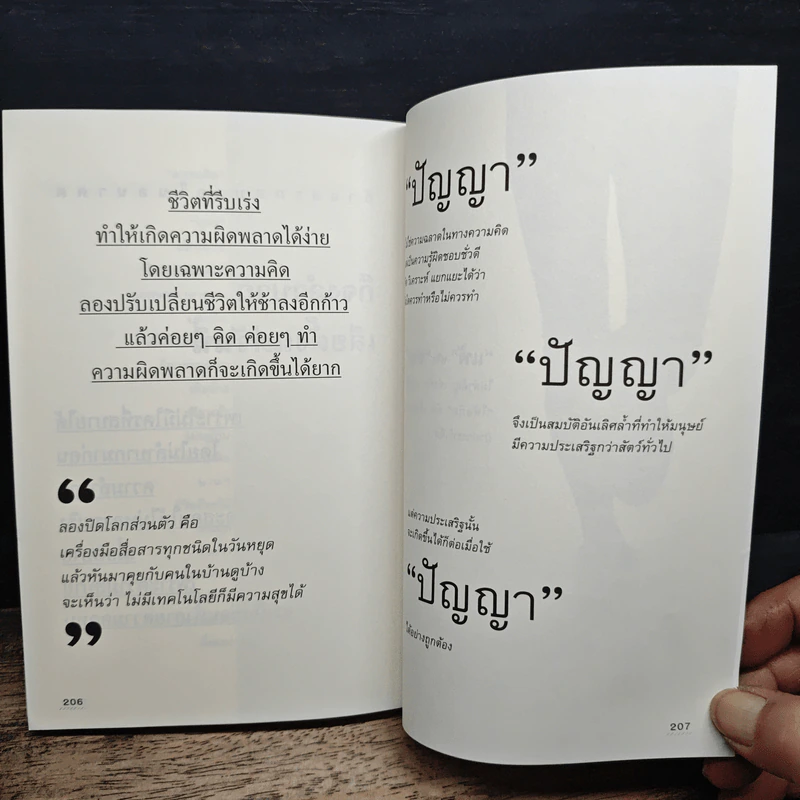 ชีวิตที่รีบเร่ง
ทำให้เกิดความผิดพลาดได้ง่าย
โดยเฉพาะความคิด
ลองปรับเปลี่ยนชีวิตให้ช้าลงอีกก้าว
แล้วค่อยๆ คิด ค่อยๆ ทำ
ความผิดพลาดก็จะเกิดขึ้นได้ยาก
“
ลองปิดโลกส่วนตัว คือ
เครื่องมือสื่อสารทุกชนิดในวันหยุด
แล้วหันมาคุยกับคนในบ้านดูบ้าง
จะเห็นว่า ไม่มีเทคโนโลยีก็มีความสุขได้
”
206
“ปัญญา”
ความฉลาดในทางความคิด
เป็นความรู้ผิดชอบชั่วดี
วิเคราะห์ แยกแยะได้ว่า
ควรทำหรือไม่ควรทำ
“ปัญญา”
จึงเป็นสมบัติอันเลิศล้ำที่ทำให้มนุษย์
มีความประเสริฐกว่าสัตว์ทั่วไป
แต่ความประเสริฐนั้น
จะเกิดขึ้นได้ก็ต่อเมื่อใช้
“ปัญญา”
ได้อย่างถูกต้อง
207